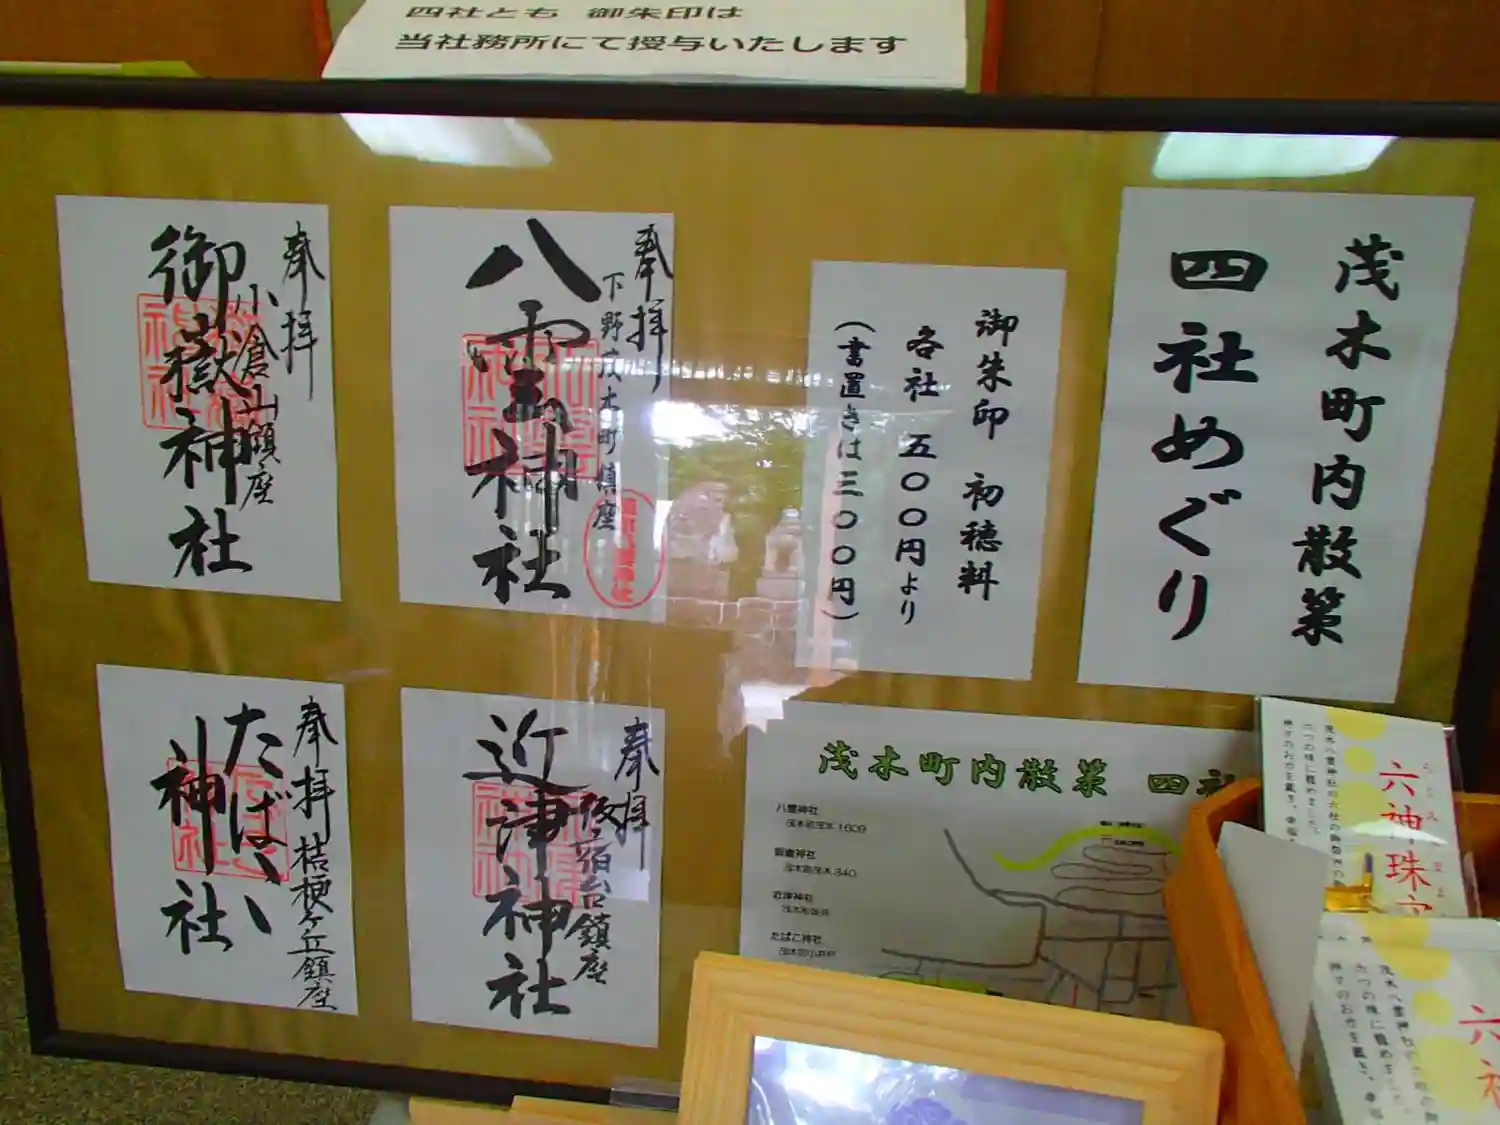 四社とも 御朱印は
当社務所にて授与いたします
茂木町内散策
四社めぐり
御朱印 初穂料
各社 五〇〇円より
(書置きは三〇〇円)
奉拝
下野茂木町鎮座
八雲神社
奉拝
小倉山鎮座
御嶽神社
奉拝
宿台鎮座
近津神社
奉拝
桔梗ケ丘鎮座
たばこ
神社
茂木町内散策 四社
八雲神社
茂木町茂木 1609
御嶽神社
茂木町茂木 340
近津神社
たばこ神社
六神珠
茂木八雲神社の六社の御祭神の
六つの珠に籠めました。
神々のお力を戴き、幸福
六神
茂木八雲神社の六社の御
六つの珠に籠めました。
神々のお力を戴き、幸福